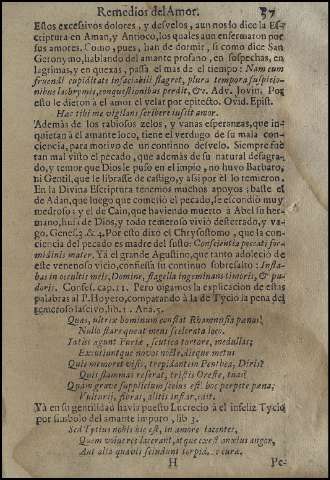 Remedios del Amor. 57
Estos excessivos dolores, y desvelos, aun nos lo dice la Es-
criptura en Aman, y Annoco, los quales aun enfermaron por
sus amores. Como, pues, han de dormir, si como dice San
Geronymo, hablando del amante profano, en sospechas, en
lagrimas, y en quexas, passa el mas de el tiempo: Nam cum
fruendi cupiditate insaciabili flagret, plura tempora suspicio-
nibus lachrymis, conquestionibus perdit, &c. Adv. Jovin. Por
esto le dieron à el amor el velar por epitecto. Ovid. Epist.
Hac tibi me vigilans scribere jussit amor.
Además de los rabiosos zelos, y vanas esperanzas, que in-
quietan à el amante loco, tiene el verdugo de su mala con-
ciencia, para motivo de un continuo desvelo. Siempre fuè
tan mal visto el pecado, que además de su natural desagra-
do, y temor que Dios le puso en el impio, no huvo Barbaro,
ni Gentil, que se librasse de castigo, assi por èl lo temieron.
En la Divina Escriptura tenemos muchos apoyos: baste el
de Adan, que luego que cometiò el pecado, se escondiò muy
medroso: y el de Cain, que haviendo muerto à Abel su her-
mano, huìa de Dios, y todo temeroso viviò desterrado, y va-
go. Genes. 3. & 4. Por esto dixo el Chrysostomo, que la con-
ciencia del pecado es madre del susto: Conscientia peccati for-
midinis mater. Yà el grande Agustino, que tanto adoleciò de
este venenoso vicio, confiessa su continuo sobresalto: Insta-
bas in occultis meis, Domine, flagella ingeminans timoris, & pu-
doris. Confes. cap. 11. Pero oigamos la explicacion de estas
palabras al P. Hoyero, comparando à la de Tycio la pena del
temeroso lascivo, lib. 1. Ana. 5.
Quas, ultrix hominum constat Rhamnusia panas!
Nullo stare queat mens scelerata loco.
Intus agunt Furiæ, scutica tortore, medullas;
Excutiuntque novos nocte, dieque metus
Quis memoret visis, trepidantem Penthea, Diris?
Quis flammas referat, tristis Oreste, tuas?
Quam grave supplicium sceius est! hoc perpete pœna;
Vulturis, fibras, alitis instar, edit.
Yà en su gentilidad havia puesto Lucrecio à el infeliz Tycio
por simbolo del amante impuro, lib 3.
Sed Tytius nobis hic est, in amore jacentes,
Quem volucres lacerant, atque exest anxius angor,
Aut alia quavis scindunt torpidi cura.
H Pe-